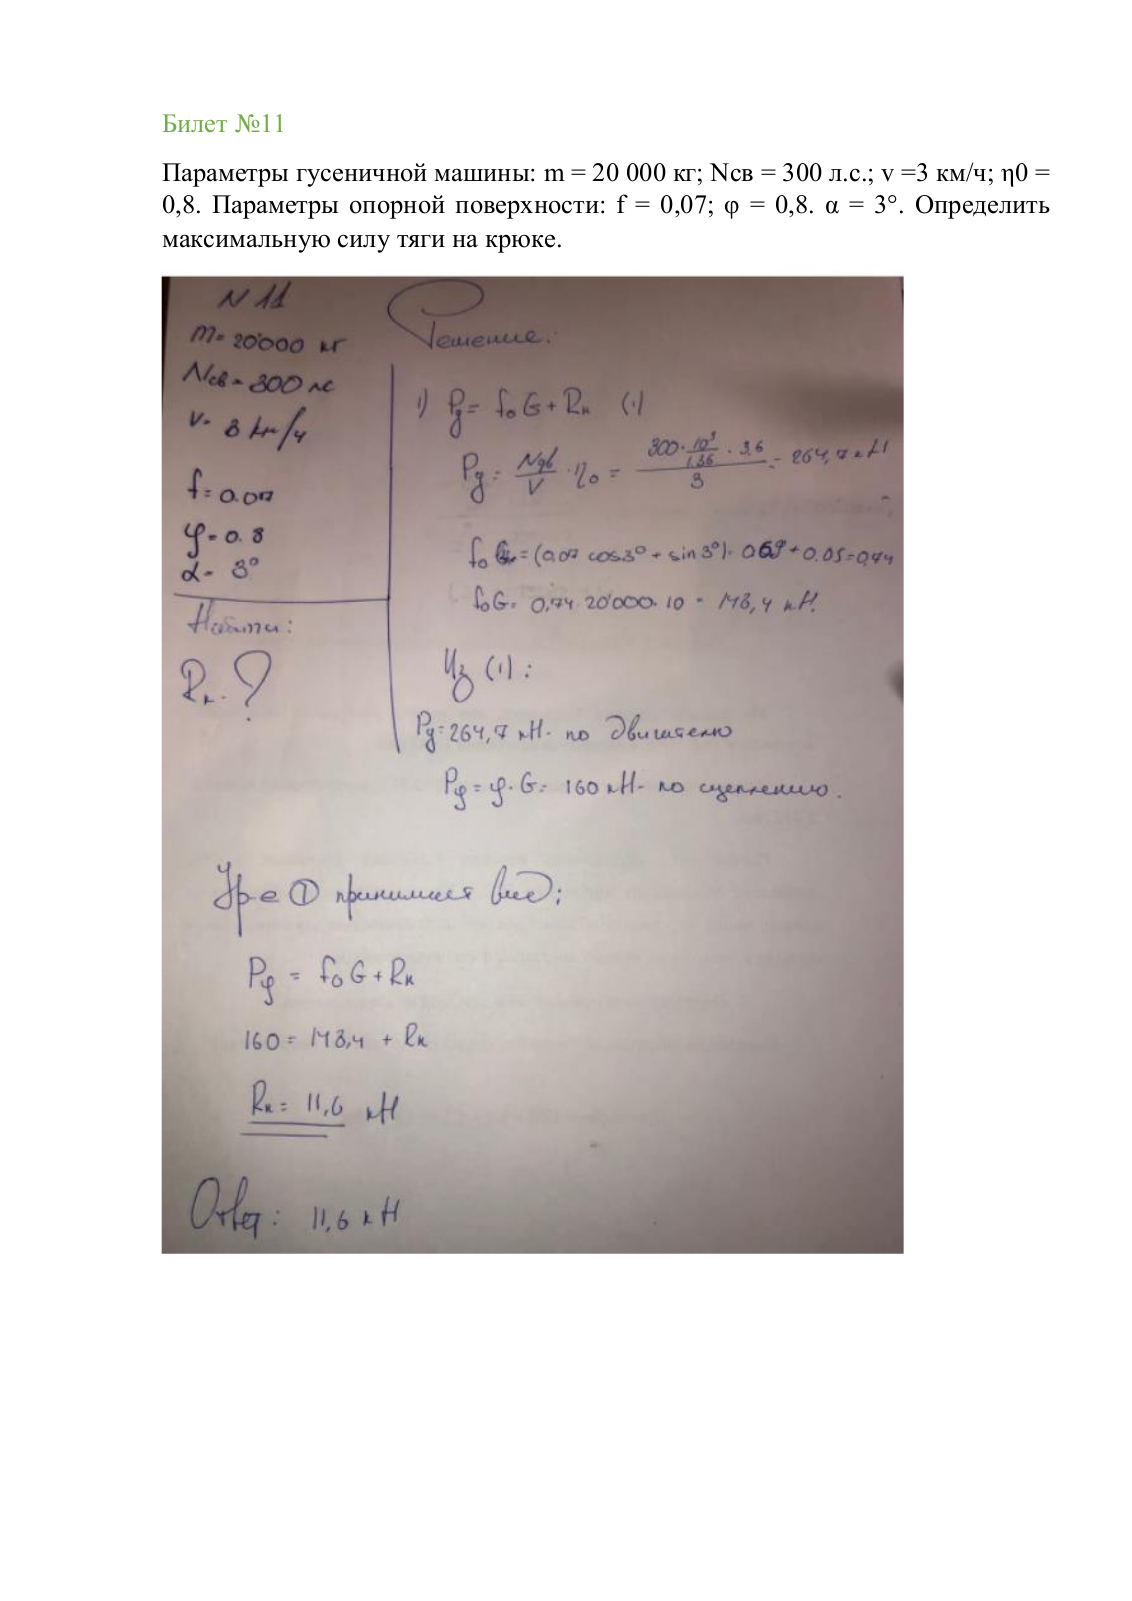 Билет №11
Параметры гусеничной машины: m = 20 000 кг; Nсв = 300 л.с.; v =3 км/ч; η0 =
0,8. Параметры опорной поверхности: f = 0,07; φ = 0,8. α = 3°. Определить
максимальную силу тяги на крюке.
N 11
m= 20'000 кг
Nсв = 300 лс
v= 3 км/ч
f = 0.07
φ = 0.8
α = 3°
Найти:
Rк - ?
Решение:
1) Pд = f₀G + Rк (1)
Pд = Nдв/V · η₀ = (300 · 10³/1.36 · 3.6)/3 = 264,7 кН
f₀ = (0.07 cos3° + sin3°) · 0.69 + 0.05 = 0,74
f₀G = 0,74 · 20'000 · 10 = 148,4 кН.
Из (1):
Pд = 264,7 кН - по двигателю
Pφ = φ · G = 160 кН - по сцеплению.
Ур-е ① принимает вид:
Pφ = f₀G + Rк
160 = 148,4 + Rк
Rк = 11,6 кН
Ответ: 11,6 кН